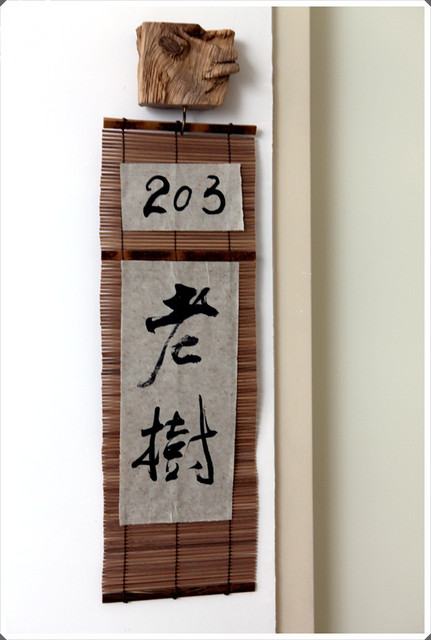 203
老樹